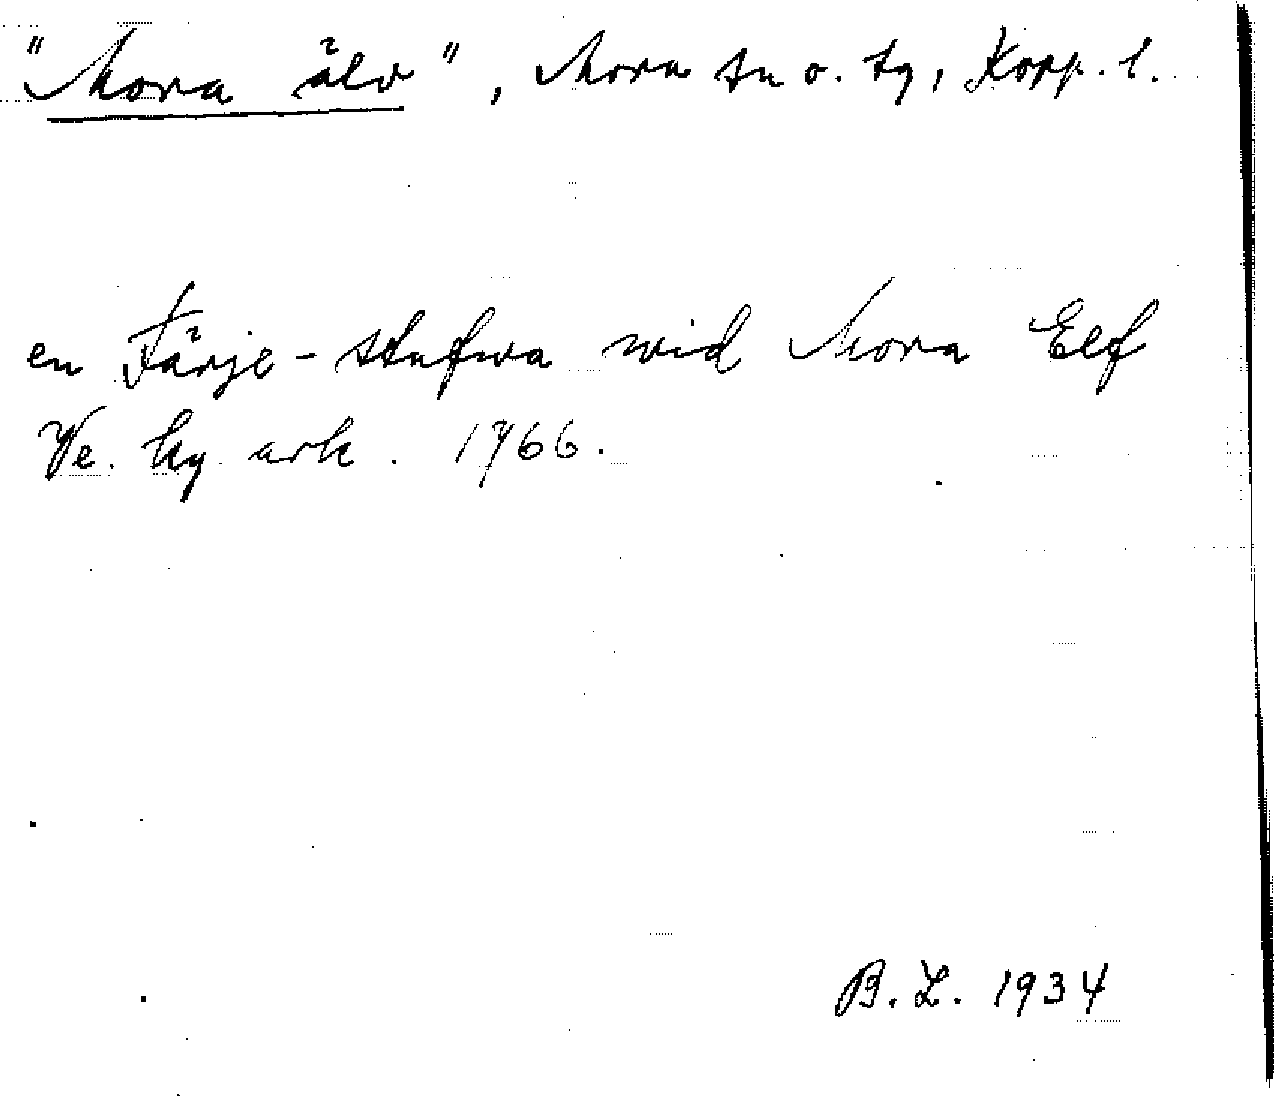 "Mora älv", Mora sn o. tg, Kopp. l.
en Färje-stufwa wid Mora Elf
Ve. ky ark. 1766.
B. L. 1934